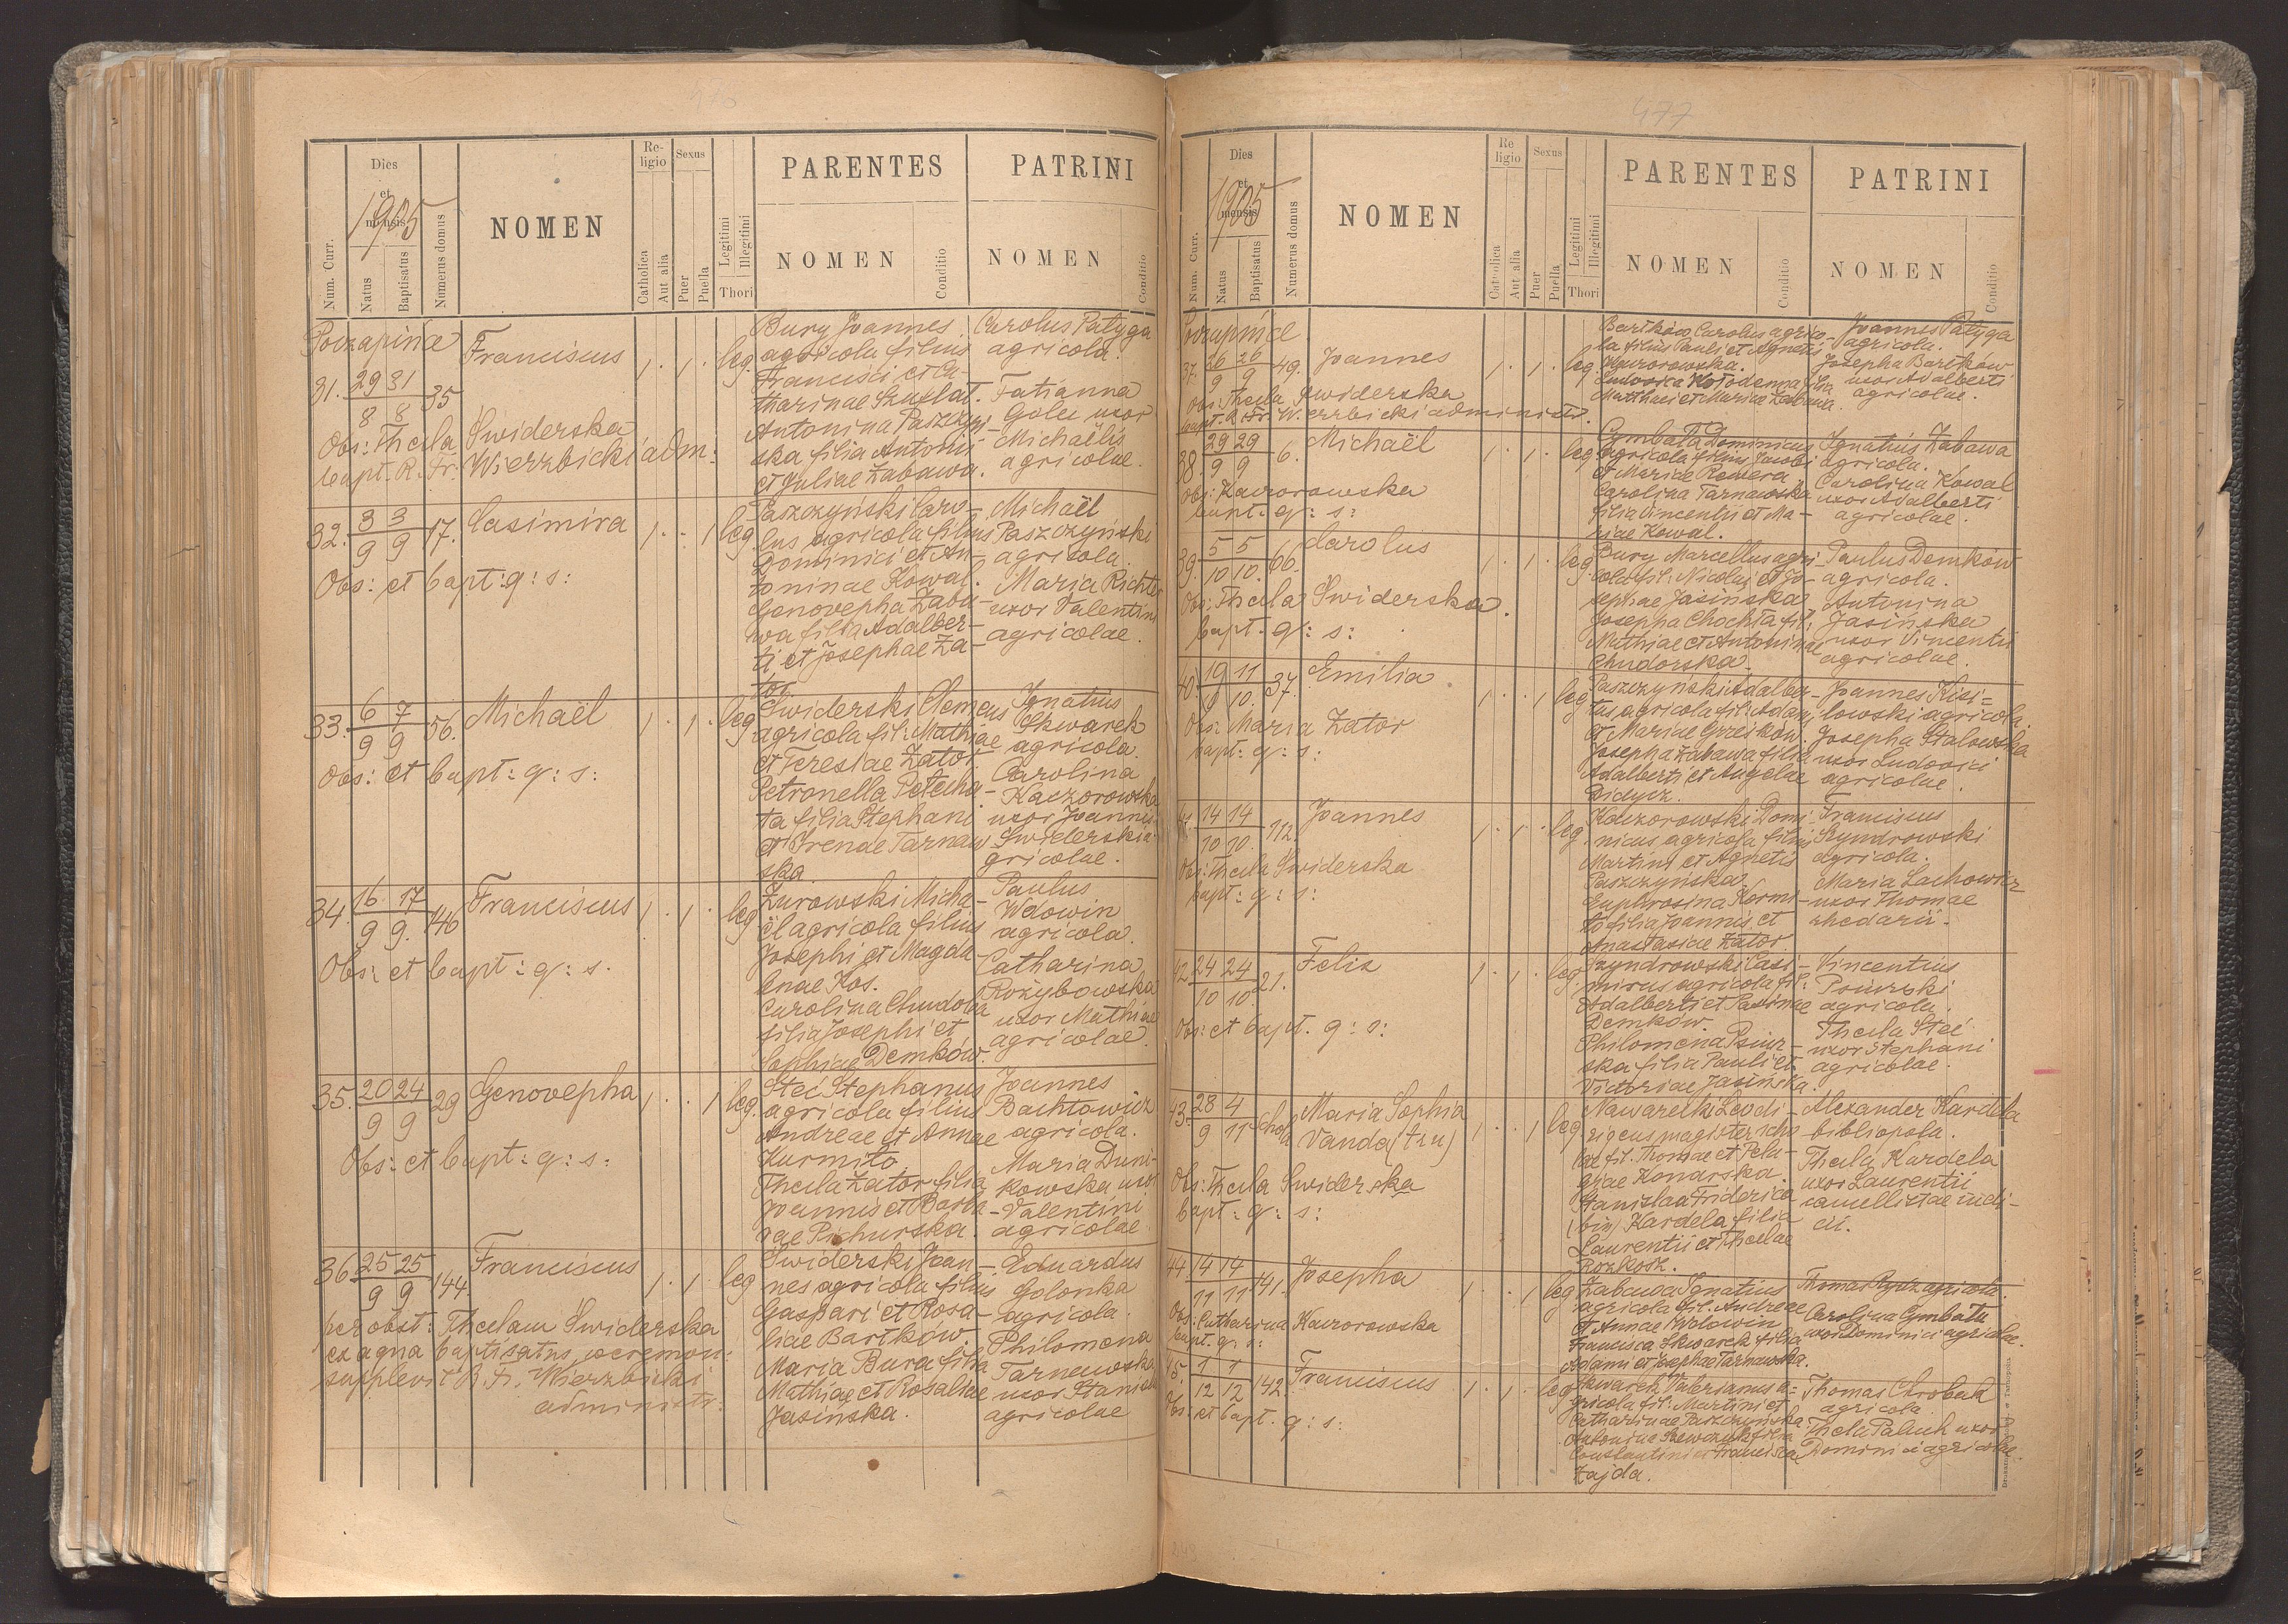 Dies et mensis
1905
Re-
ligio
Sexus
PARENTES
PATRINI
Num. Curr.
Natus
Baptisatus
Numerus domus
NOMEN
Catholica
Aut alia
Puer
Puella
Legitimi
Illegitimi
Thori
NOMEN
Conditio
NOMEN
Conditio
Franciscus
1.
1.
leg.
31.
29 31
8 8
35
Obs: Thecla Swiderska
bapt. R. Fr. Wierzbicki adm:
Bury Joannes
agricola filius
Francisci et Ca-
tharinae Szuflat.
Antonina Paszczyn-
ska filia Antonii
et Juliae Zabawa.
Carolus Patyga
agricola.
Tatianna
Golei uxor
Michaëlis
agricolae.
32.
3 3
9 9
17.
Casimira
1.
1
leg.
Obs: et bapt: q: s:
Paszczyński Caro-
lus agricola filius
Dominici et An-
toninae Kowal.
Genovepha Zaba-
wa filia Adalber-
ti et Josephae Za-
tor.
Michaël
Paszczyński
agricola.
Maria Richter
uxor Valentini
agricolae.
33.
6 7
9 9
56.
Michaël
1.
1.
leg.
Obs: et bapt: q: s:
Swiderski Clemens
agricola fil: Mathiae
et Teresiae Zator.
Petronella Petecha-
ta filia Stephani
et Irenae Tarnaw-
ska
Ignatius
Skwarek
agricola.
Carolina
Kaczorowska
uxor Joannis
Swiderski a-
gricolae.
34.
16 17
9 9.
146
Franciscus
1.
1.
leg.
Obs: et bapt: q: s.
Zurowski Micha-
ël agricola filius
Josephi et Magda-
lenae Kos.
Carolina Chudoba
filia Josephi et
Sophiae Demków.
Paulus
Wdowin
agricola.
Catharina
Rozybowska
uxor Mathiae
agricolae.
35.
20 24
9 9
29
Genovepha
1.
1
leg.
Obs: et bapt: q: s:
Steć Stephanus
agricola filius
Andreae et Annae
Kurmito
Thecla Zator filia
Joannis et Barba-
rae Pichurska.
Joannes
Bachtowicz
agricola.
Maria Duni-
kowska uxor
Valentini
agricolae
36
25 25
9 9
144
Franciscus
1.
1.
leg
per obst: Theclam Swiderska
ex aqua baptisatus, ceremon:
supplevit R. Fr. Wierzbicki
administr:
Swiderski Joan-
nes agricola filius
Gaspari et Rosa-
liae Bartków.
Maria Bura filia
Mathiae et Rosaliae
Jasińska.
Eduardus
Golonka
agricola.
Philomena
Tarnawska
uxor Stanisl.
agricolae
477
Dies et mensis
1905
Re
ligio
Sexus
PARENTES
PATRINI
Num. Curr.
Natus
Baptisatus
Numerus domus
NOMEN
Catholica
Aut alia
Puer
Puella
Legitimi
Illegitimi
Thori
NOMEN
Conditio
NOMEN
Conditio
37.
26 26
9 9
49.
Joannes
1.
1.
leg.
Obs: Thecla Swiderska
bapt. R. Fr. Wierzbicki administr.
Bartków Carolus agrico-
la filius Pauli et Agnetis
Kaczorowska.
Ludovica Kołodenna filia
Matthaei et Mariae Zabawa.
Joannes Patyga
agricola.
Josepha Bartków
uxor Adalberti
agricolae.
38.
29 29
9 9
6.
Michaël
1.
1.
leg.
Obs: Kaczorowska
bapt: q: s:
Cymbała Dominicus
agricola filius Jacobi
et Mariae Rewera
Carolina Tarnawska
filia Vincentii et Ma-
riae Kowal.
Ignatius Zabawa
agricola.
Carolina Kowal
uxor Adalberti
agricolae.
39.
5 5
10 10.
66.
Carolus
1.
1.
leg.
Obs: Thecla Swiderska.
bapt. q: s:
Bury Marcellus agri-
cola fil: Nicolai et Jo-
sephae Jasińska
Josepha Chochła fil:
Mathiae et Antoninae
Chudorska.
Paulus Demków
agricola.
Antonina
Jasińska
uxor Vincentii
agricolae.
40
37.
Emilia
1.
1
leg
Obs: Maria Zator
bapt: q: s:
Paszczyński Adalber-
tus agricola fil: Adami
et Mariae Grześków.
Josepha Zabawa filia
Adalberti et Angelae
Didycz.
Joannes Kisi-
lowski agricola.
Josepha Stalowska
uxor Ludovici
agricolae.
41.
14 14
10 10.
112.
Joannes
1.
1.
leg.
Obs: Thecla Swiderska
bapt: q: s:
Kaczorowski Domi-
nicus agricola filius
Martini et Agnetis
Paszczyńska.
Euphrosina Kormi-
to filia Joannis et
Anastasiae Zator.
Franciscus
Szyndrowski
agricola.
Maria Lachowicz
uxor Thomae
rhedarii.
42
24 24
10 10
21.
Felix
1.
1.
leg.
Obs: et bapt. q: s:
Szyndrowski Casi-
mirus agricola fil:
Adalberti et Paulinae
Demków.
Philomena Psiur-
ska filia Pauli et
Victoriae Jasińska.
Vincentius
Psiurski
agricola.
Thecla Steć
uxor Stephani
agricolae.
43.
28 4
9 11
schola
Maria Sophia
Vanda (tri)
1.
1
leg
Obs: Thecla Swiderska
bapt: q: s:
Nawarecki Leodi-
rigeus magister scho
lae fil. Thomae et Pela-
giae Konarska.
Stanislaa Friderica
(bin) Kardela filia
Laurentii et Theclae
Rozkosz.
Alexander Kardela
bibliopola.
Thecla Kardela
uxor Laurentii
cancellistae iudi-
cii.
44
14 14
11 11
141.
Josepha
1.
1
leg
Obs: Catharina Kaczorowska
bapt. q: s:
Zabawa Ignatius
agricola fil. Andreae
et Annae Wdowin
Francisca Skwarek filia
Adami et Josephae Tarnawska.
Thomas Rydz agricola.
Carolina Cymbała
uxor Dominici agricolae.
45.
1 1
12 12
142
Franciscus
1.
1.
leg
Obs: et bapt. q: s:
Skwarek Valerianus a-
gricola fil: Martini et
Catharinae Paszczyńska.
Antonina Szewczuk filia
Constantini et Francisca
Zajda.
Thomas Chrobak
agricola
Thecla Paluch uxor
Dominici agricolae